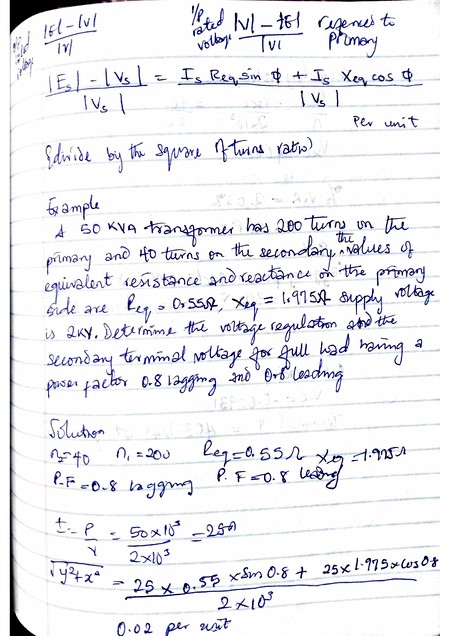 |E| - |V|
|V|
I/P rated voltage |V| - |E| referenced to
|V| primary
|Es| - |Vs| = Is Req sin ϕ + Is Xeq cos ϕ
|Vs| |Vs|
Per unit
(divide by the square of turns ratio)
Example
A 50 KVA transformer has 200 turns on the
primary and 40 turns on the secondary the values of
equivalent resistance and reactance on the primary
side are Req = 0.55Ω, Xeq = 1.975Ω supply voltage
is 2KV. Determine the voltage regulation and the
secondary terminal voltage for full load having a
power factor 0.8 lagging and 0.8 leading
Solution
n2=40 n1=200 Req=0.55Ω Xeq=1.975Ω
P.F=0.8 lagging P.F=0.8 leading
I = P/V = 50×10³ = 25A
2×10³
√y²+x² = 25 × 0.55 × sin 0.8 + 25×1.975×cos 0.8
2×10³
0.02 per unit